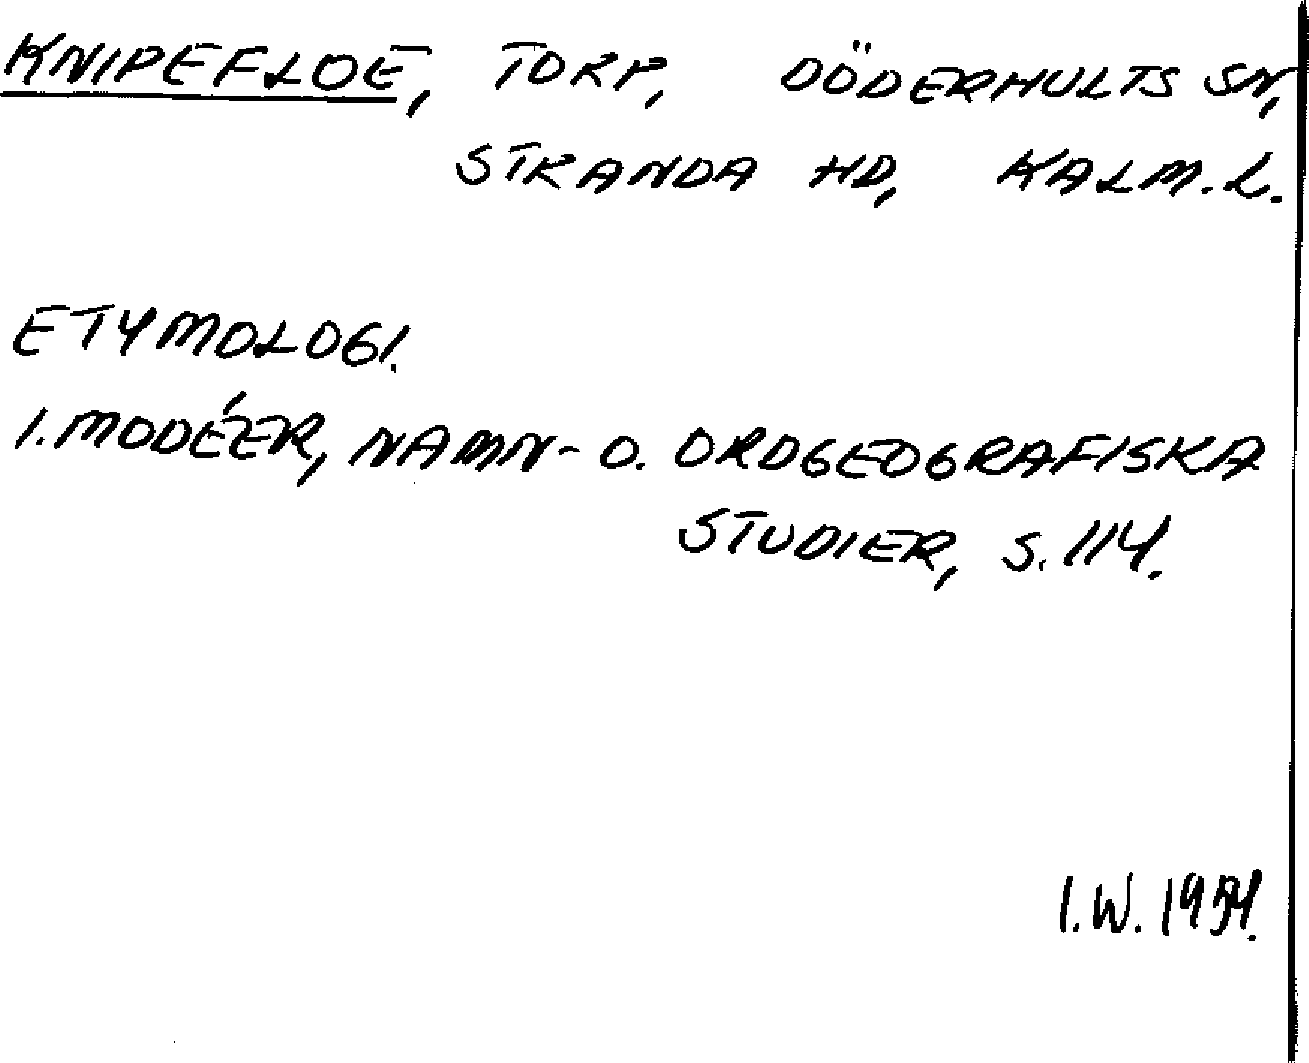 KNIPEFLOE, TORP, DÖDERHULTS SN,
STRANDA HD, KALM. L.
ETYMOLOGI.
I. MODÉER, NAMN- O. ORDGEOGRAFISKA
STUDIER, S. 114.
I. W. 1954.